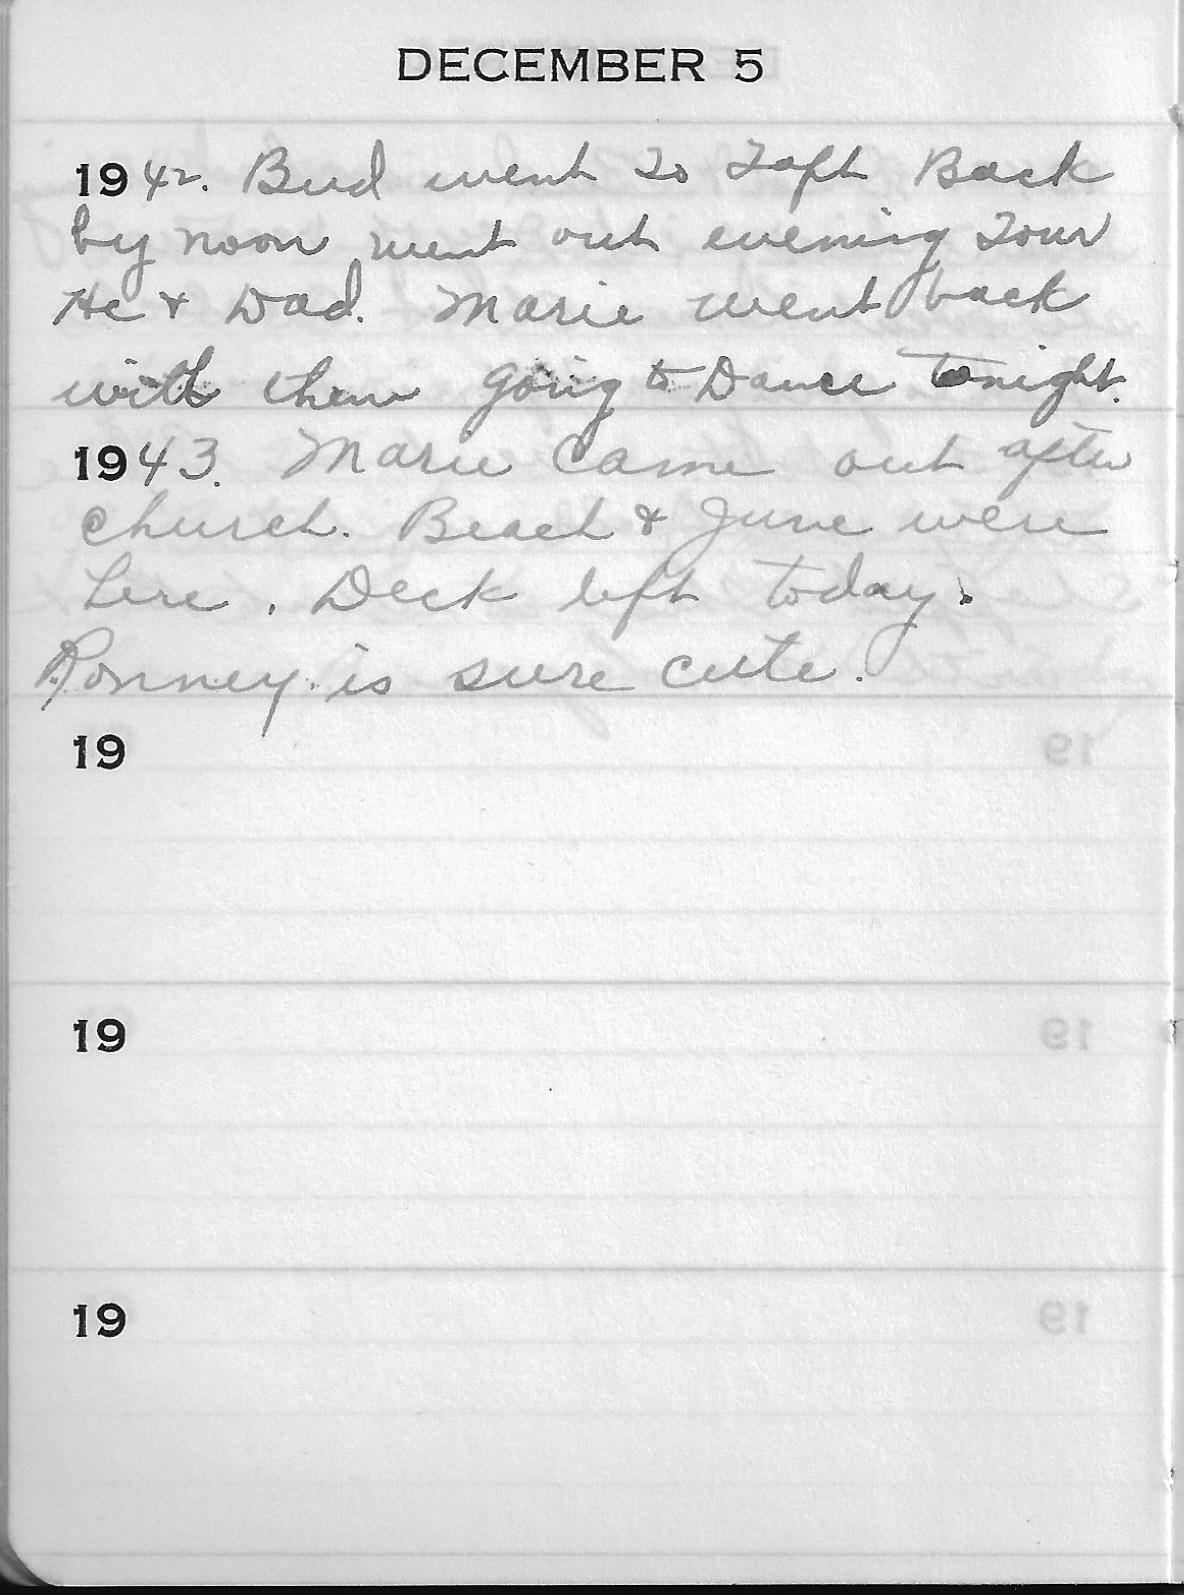 DECEMBER 5
1942. Bud went to Taft Back
by noon went out evening Tour
He & Dad. Marie went back
with them going to Dance tonight.
1943. Marie came out after
church. Beach & June were
here. Deck left today.
Ronney is sure cute.
19
19
19